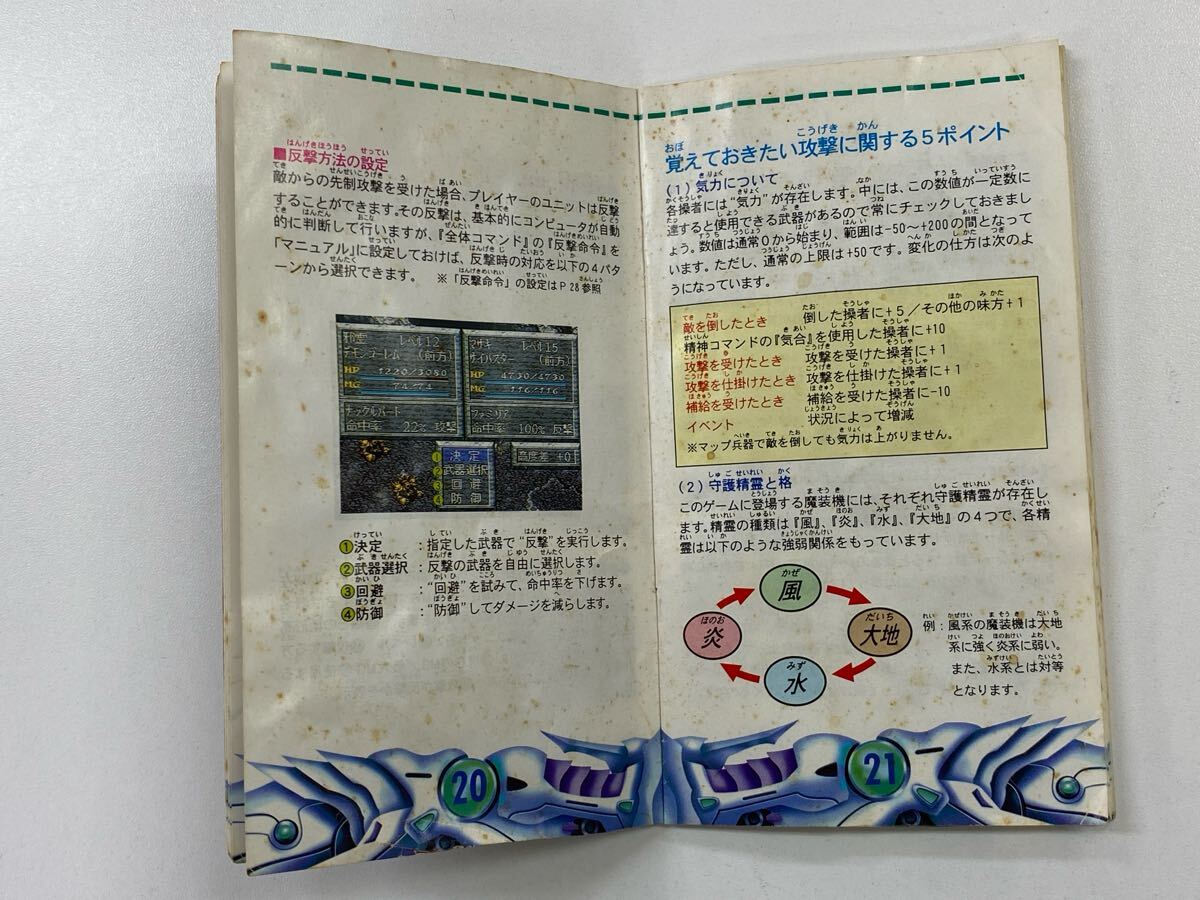 ■反撃方法の設定
敵からの先制攻撃を受けた場合、プレイヤーのユニットは反撃
することができます。その反撃は、基本的にコンピュータが自動
的に判断して行いますが、『全体コマンド』の『反撃命令』を
「マニュアル」に設定しておけば、反撃時の対応を以下の4パタ
ーンから選択できます。 ※「反撃命令」の設定はP28参照
レベル12
デモンゴーレム (前方)
HP 1220/3080
MG 74/74
ナックルパート
命中率 22% 攻撃
マサキ レベル15
サイバスター (前方)
HP 4730/4730
MG 116/116
ファミリア
命中率 100% 反撃
①決定
②武器選択
③回避
④防御
高度差 +0
①決定 :指定した武器で“反撃”を実行します。
②武器選択 :反撃の武器を自由に選択します。
③回避 :“回避”を試みて、命中率を下げます。
④防御 :“防御”してダメージを減らします。
20
覚えておきたい攻撃に関する5ポイント
(1) 気力について
各操者には“気力”が存在します。中には、この数値が一定数に
達すると使用できる武器があるので常にチェックしておきまし
ょう。数値は通常0から始まり、範囲は-50〜+200の間となって
います。ただし、通常の上限は+50です。変化の仕方は次のよ
うになっています。
敵を倒したとき 倒した操者に+5/その他の味方+1
精神コマンドの『気合』を使用した操者に+10
攻撃を受けたとき 攻撃を受けた操者に+1
攻撃を仕掛けたとき 攻撃を仕掛けた操者に+1
補給を受けたとき 補給を受けた操者に-10
イベント 状況によって増減
※マップ兵器で敵を倒しても気力は上がりません。
(2) 守護精霊と格
このゲームに登場する魔装機には、それぞれ守護精霊が存在し
ます。精霊の種類は『風』、『炎』、『水』、『大地』の4つで、各精
霊は以下のような強弱関係をもっています。
風
炎
大地
水
例:風系の魔装機は大地
系に強く炎系に弱い。
また、水系とは対等
となります。
21